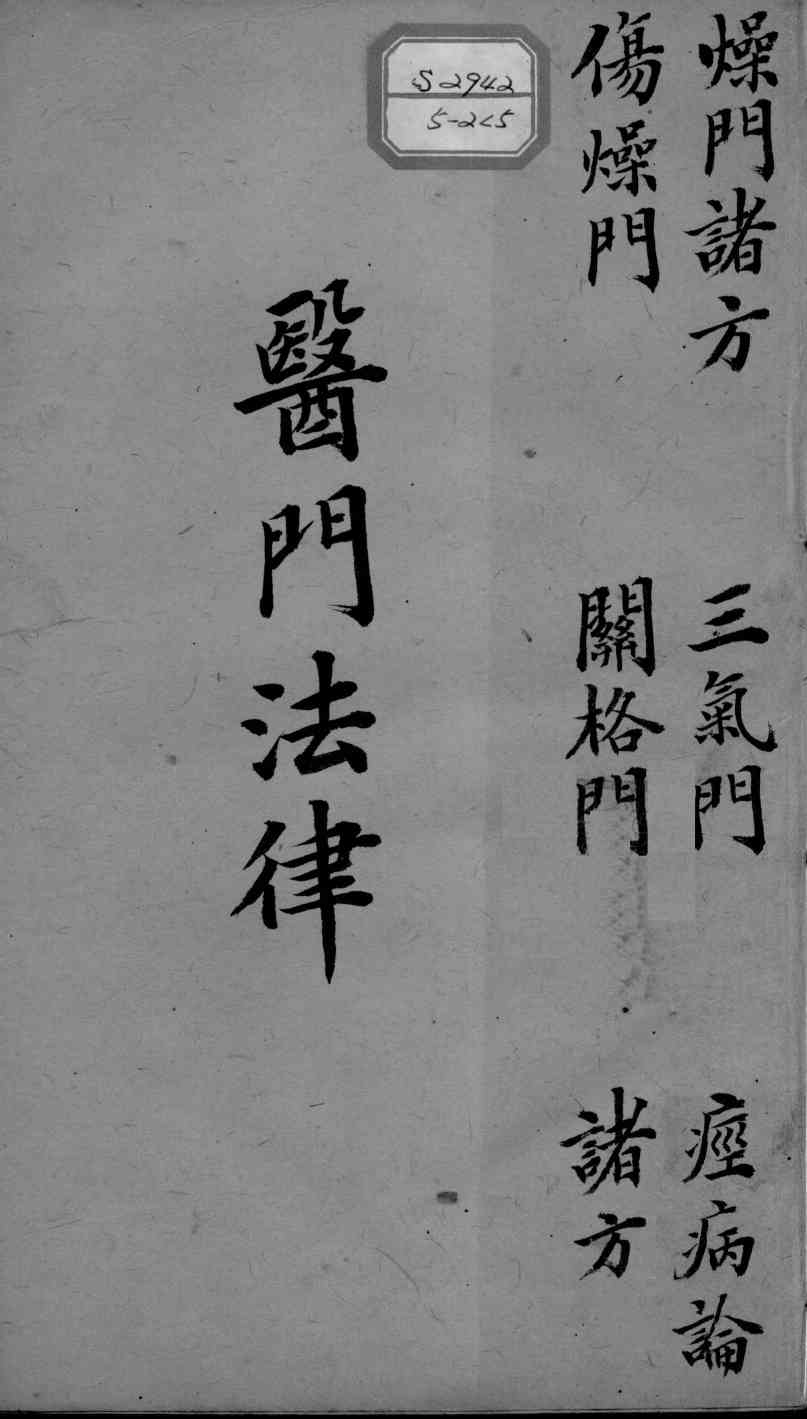 燥門諸方
傷燥門
三氣門
關格門
痙病論
諸方
醫門法律
S2942
5-2<5